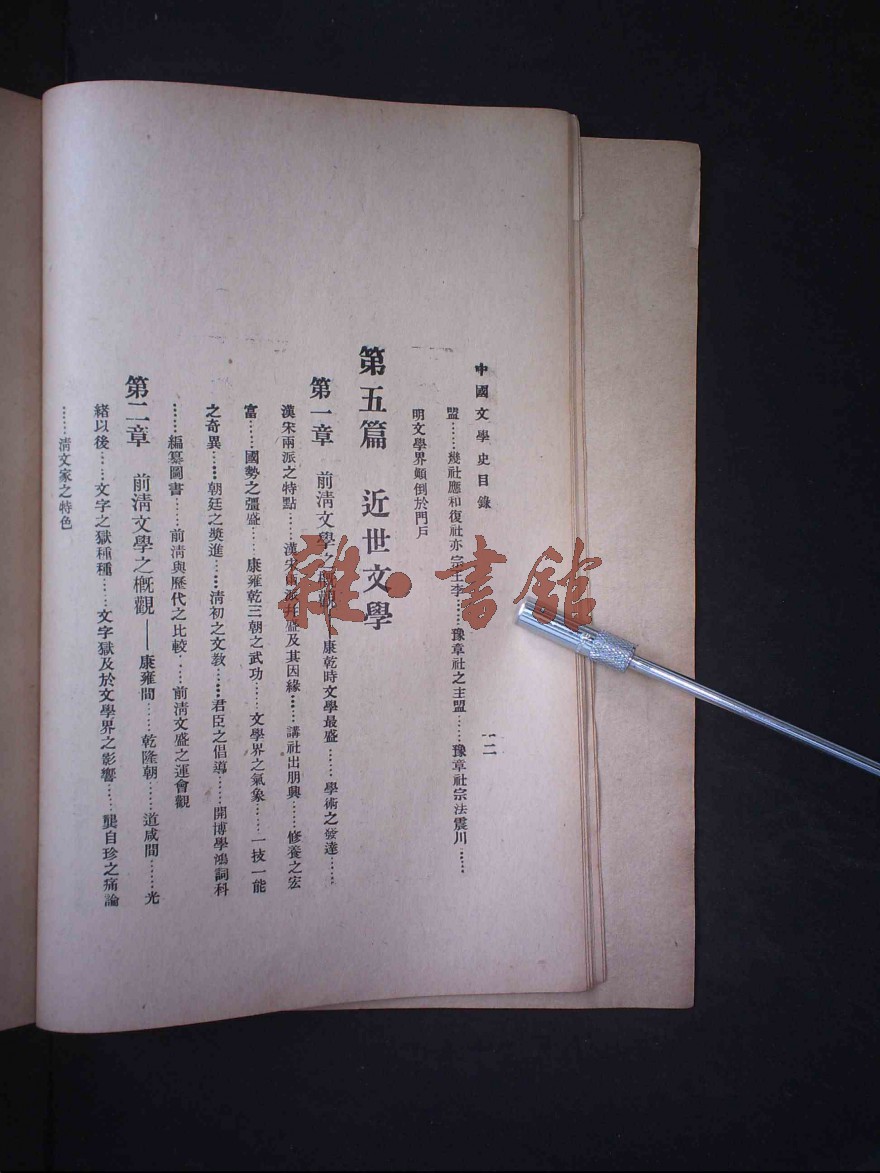 中國文學史目錄
一二
盟……幾社應和復社亦宗王李……豫章社之主盟……豫章社宗法震川……
明文學界顛倒於門戶
第五篇 近世文學
第一章 前淸文學之槪觀——康乾時文學最盛……學術之發達……
漢宋兩派之特點……漢宋兩派幷盛及其因緣……講社出朋興……修養之宏
富……國勢之彊盛……康雍乾三朝之武功……文學界之氣象……一技一能
之奇異……朝廷之奬進……淸初之文敎……君臣之倡導……開博學鴻詞科
……編纂圖書……前淸與歷代之比較……前淸文盛之運會觀
第二章 前淸文學之槪觀——康雍間……乾隆朝……道咸間……光
緖以後……文字之獄種種……文字獄及於文學界之影響……龔自珍之痛論
……淸文家之特色
雜·書館